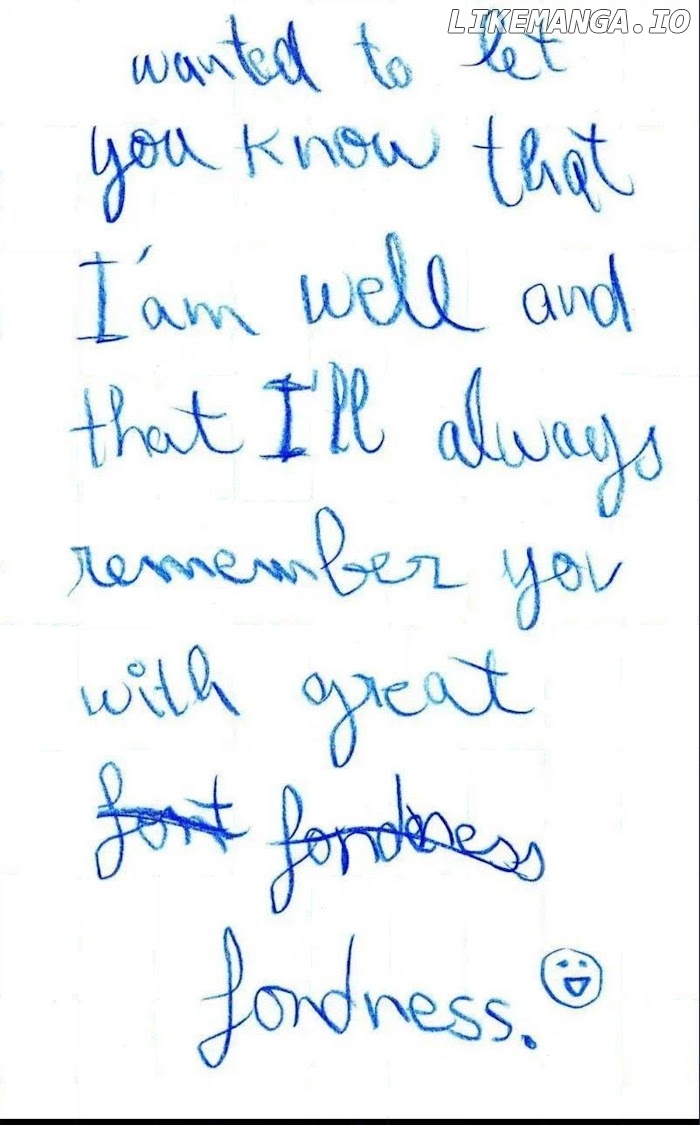 LIKEMANGA.IO
wanted to let
you know that
I'am well and
that I'll always
remember you
with great
font fondness
fondness.